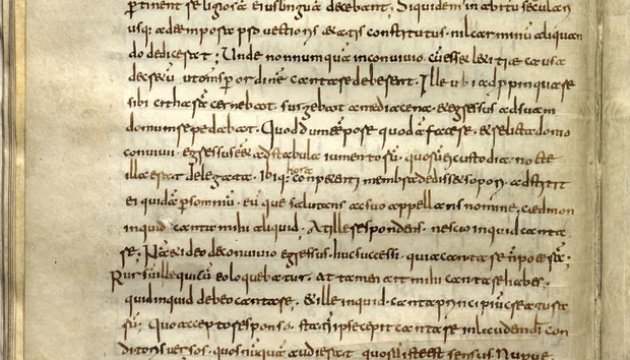 ptinent & religiosa eius lingua decebant. Siquidem in abitu seculari
usq: ad tempora puectioris aetatis constitutus. nil carminu aliquan
do dedicerat; Unde nonnumquā in conuiuio. cū esset laetitiae causa
decretū ut omns per ordinē cantare deberent. Ille ubi adppinquare
sibi citharā cernebat. surgebat amedia cena. & egressus adsuam
domum repedabat. Quod dum tempore quodā faceret. & relicta domo
conuiuii. egressus eēt ad stabula iumentorū. quorū ei custodia nocte
illa erat delegata. ibiq: hora conpetenti membra dedisset sopori. adstitit
ei quidā p somniū. eūque salutans ac suo appellans nomine. caedmon
inquid canta mihi aliquid. At ille respondens. nescio inquid canta
re; Nā & ideo deconuiuio egressus. huc secessi. quia cantare ñ poterā;
Rursū ille qui cū eo loquebatur. At tamen ait mihi cantare habes.
quid inquid debeo cantare. & ille inquid. canta principiū creaturarū
Quo accepto responso. statī ipse cepit cantare in laudem di con
ditoris uersos. quos nūquā audierat. quorū iste est sensus Nunc